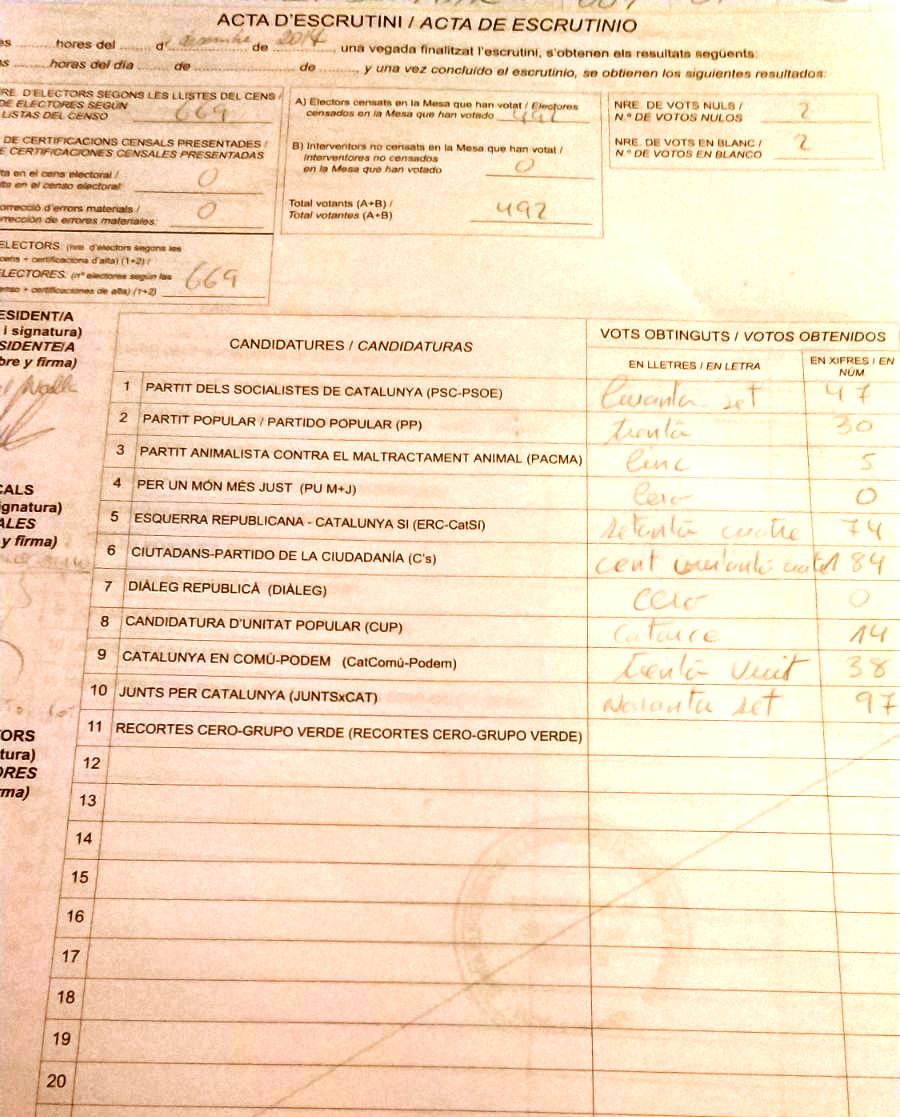 ACTA D'ESCRUTINI / ACTA DE ESCRUTINIO
hores del d' desembre de 2017, una vegada finalitzat l'escrutini, s'obtenen els resultats següents:
horas del día de de, y una vez concluido el escrutinio, se obtienen los siguientes resultados:
NRE. D'ELECTORS SEGONS LES LLISTES DEL CENS /
DE ELECTORES SEGÚN
LISTAS DEL CENSO 669
DE CERTIFICACIONS CENSALS PRESENTADES /
DE CERTIFICACIONES CENSALES PRESENTADAS
ta en el cens electoral /
ta en el censo electoral: 0
orrecció d'errors materials /
rrección de errores materiales: 0
ELECTORS: (nre. d'electors segons les
cens + certificacions d'alta) (1+2) /
ELECTORES: (nº electores según las
enso + certificaciones de alta) (1+2) 669
A) Electors censats en la Mesa que han votat / Electores
censados en la Mesa que han votado 492
B) Interventors no censats en la Mesa que han votat /
Interventores no censados
en la Mesa que han votado 0
Total votants (A+B) /
Total votantes (A+B) 492
NRE. DE VOTS NULS /
N.º DE VOTOS NULOS 2
NRE. DE VOTS EN BLANC /
N.º DE VOTOS EN BLANCO 2
ESIDENT/A
i signatura)
SIDENTE/A
bre y firma)
CALS
ignatura)
ALES
y firma)
TORS
tura)
ORES
rma)
CANDIDATURES / CANDIDATURAS
VOTS OBTINGUTS / VOTOS OBTENIDOS
EN LLETRES / EN LETRA
EN XIFRES / EN
NÚM
1 PARTIT DELS SOCIALISTES DE CATALUNYA (PSC-PSOE) set 47
2 PARTIT POPULAR / PARTIDO POPULAR (PP) trenta 30
3 PARTIT ANIMALISTA CONTRA EL MALTRACTAMENT ANIMAL (PACMA) cinc 5
4 PER UN MÓN MÉS JUST (PU M+J) Cero 0
5 ESQUERRA REPUBLICANA - CATALUNYA SI (ERC-CatSí) setanta cuatre 74
6 CIUTADANS-PARTIDO DE LA CIUDADANÍA (C's) cent 184
7 DIÀLEG REPUBLICÀ (DIÀLEG) cero 0
8 CANDIDATURA D'UNITAT POPULAR (CUP) catorce 14
9 CATALUNYA EN COMÚ-PODEM (CatComú-Podem) trenta vuit 38
10 JUNTS PER CATALUNYA (JUNTSxCAT) set 97
11 RECORTES CERO-GRUPO VERDE (RECORTES CERO-GRUPO VERDE)
12
13
14
15
16
17
18
19
20